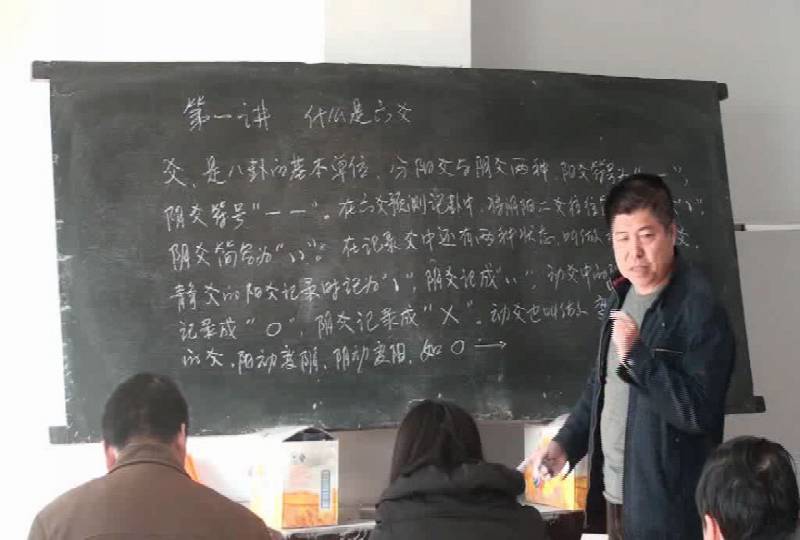 第一讲 什么是六爻
爻、是八卦的基本单位、分阳爻与阴爻两种、阳爻符号为“一”、
阴爻符号“一一”。在六爻预测记卦中、将阴阳二爻往往“、”。
阴爻简写为“、、”。在记录爻中还有两种状态、叫做 爻、
静爻的阳爻记录时记为“、”，阴爻记成“、、”，动爻中的
记录成“O”，阴爻记录成“X”。动爻也叫做变
的爻、阳动变阴、阴动变阳、如O→